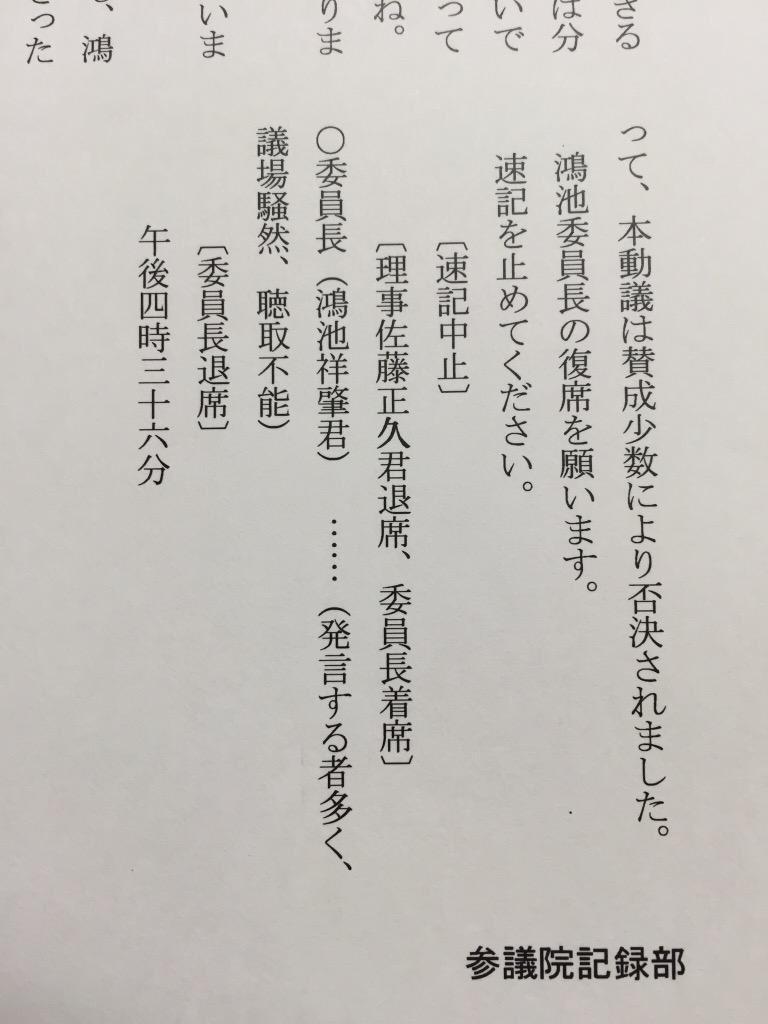 さる
は分
いで
って
ね。
りま
いま
、鴻
さった
って、本動議は賛成少数により否決されました。
鴻池委員長の復席を願います。
速記を止めてください。
〔速記中止〕
〔理事佐藤正久君退席、委員長着席〕
○委員長（鴻池祥肇君）　……（発言する者多く、
議場騒然、聴取不能）
〔委員長退席〕
午後四時三十六分
参議院記録部